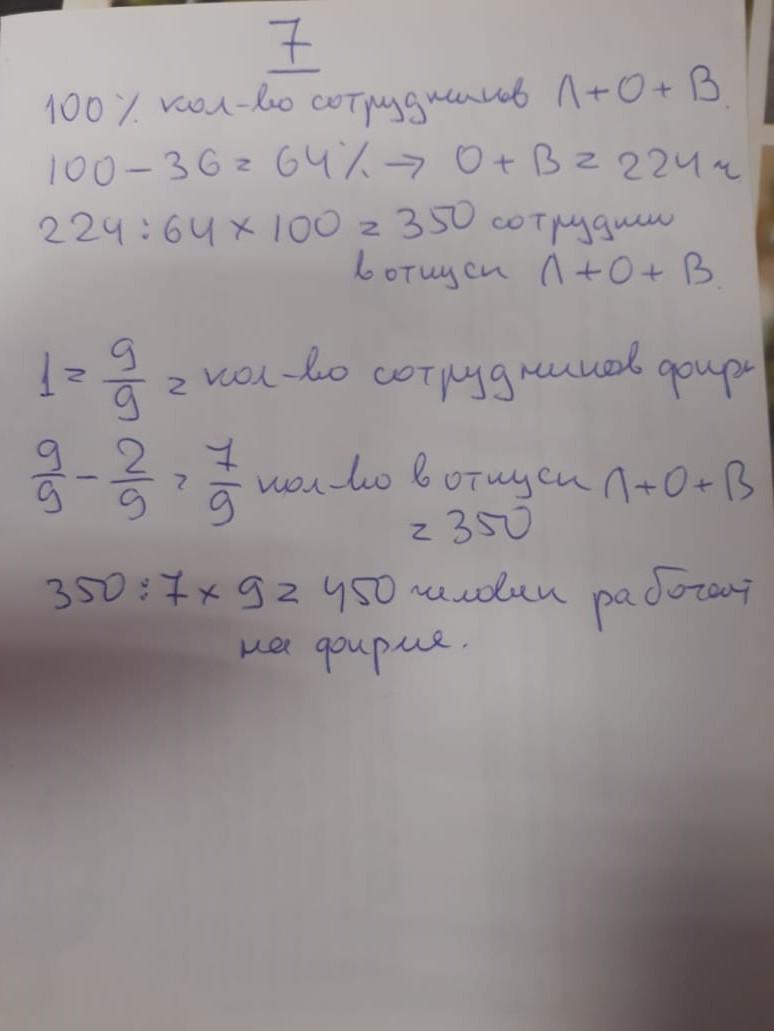 7
100% кол-во сотрудников Л+О+В.
100-36=64% → О+В=224ч
224:64×100=350 сотрудни
в отпуск Л+О+В.
1=9/9=кол-во сотрудников фирм
9/9-2/9=7/9 кол-во в отпуск Л+О+В
=350
350:7×9=450 человек работает
на фирме.